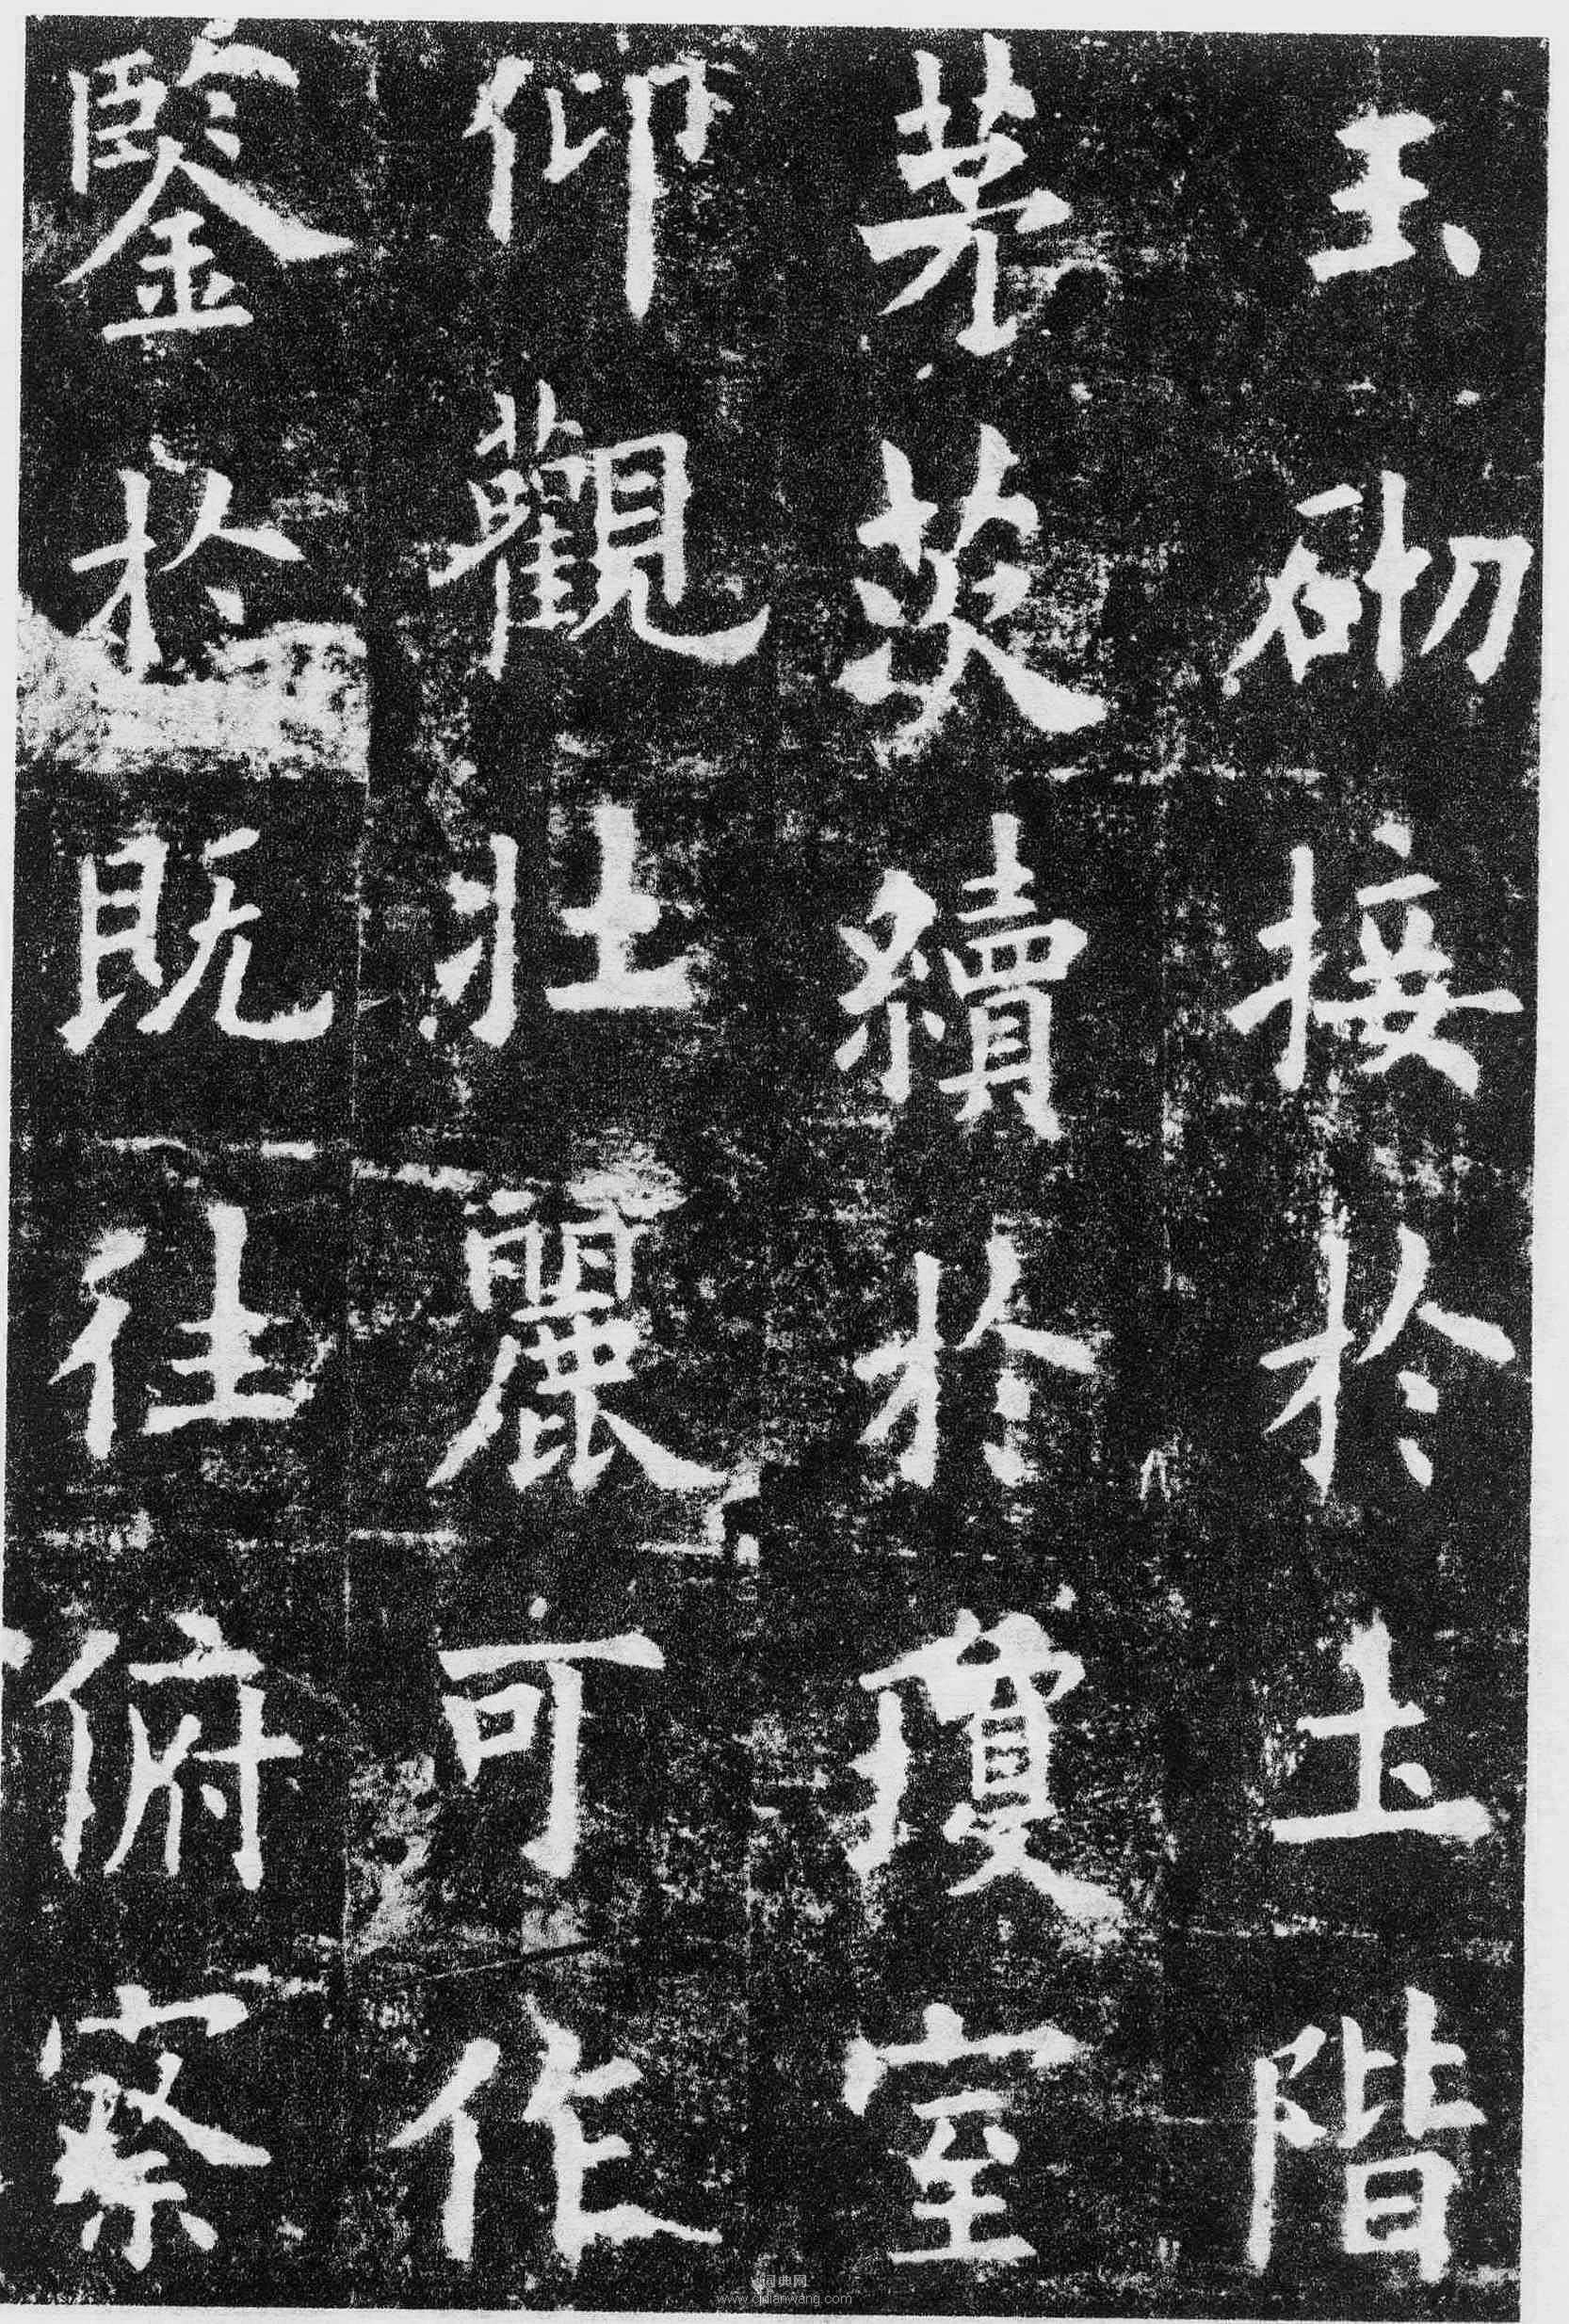 玉砌接於土階
茅茨續於瓊室
仰觀壯麗可作
鑒於既往俯察
词典网
www.cidianwang.com